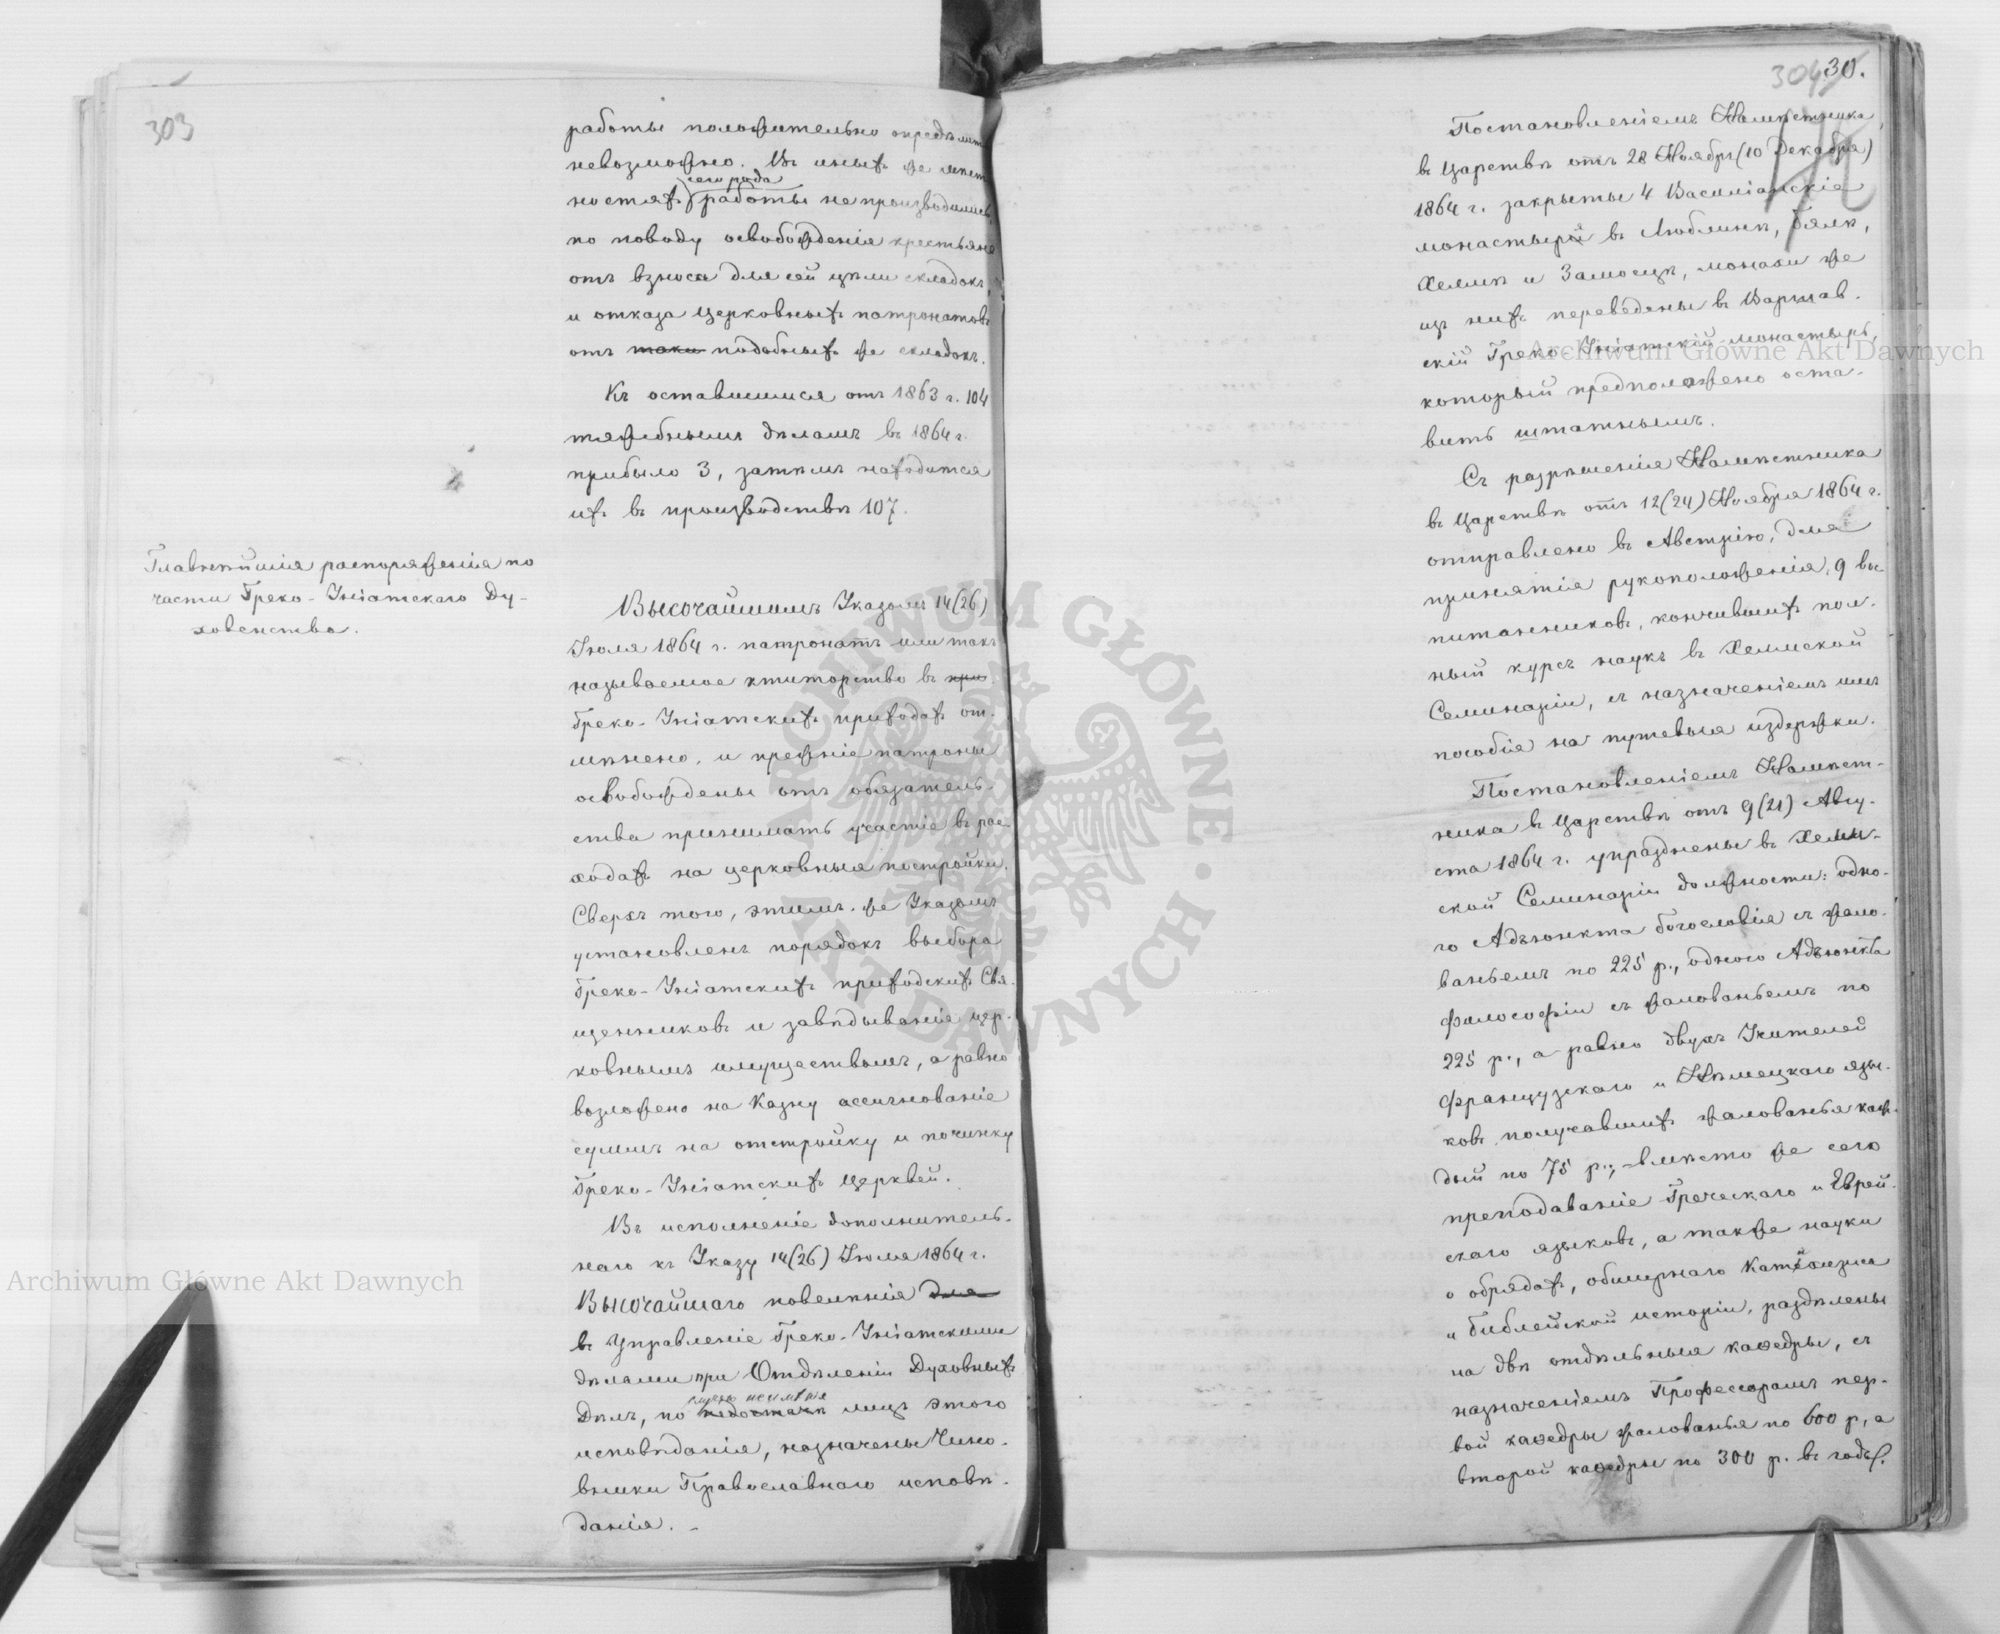 303
работы положительно опредѣлить
невозможно. Въ иныхъ же мѣст
сего рода
ностяхъ работы не производились,
по поводу освобожденія крестьянъ
отъ взноса для сей цѣли складокъ,
и отказа церковныхъ патроновъ
отъ таки подобныхъ же складокъ.
Къ оставшимся отъ 1863 г. 104
тяжебнымъ дѣламъ въ 1864 г.
прибыло 3, затѣмъ находится
ихъ въ производствѣ 107.
Главнѣйшія распоряженія по
части Греко-Уніатскаго Ду-
ховенства.
Высочайшимъ Указомъ 14(26)
Іюля 1864 г. патронатъ или такъ
называемое ктиторство въ при
Греко-Уніатскихъ приходахъ от-
мѣнено, и прежніе патроны
освобождены отъ обязатель-
ства принимать участіе въ рас-
ходахъ на церковныя постройки.
Сверхъ того, этимъ же Указомъ
установленъ порядокъ выбора
Греко-Уніатскихъ приходскихъ Свя-
щенниковъ и завѣдываніе цер-
ковнымъ имуществомъ, а равно
возложено на Казну ассигнованіе
суммъ на отстройку и починку
Греко-Уніатскихъ Церквей.
Въ исполненіе дополнитель-
наго къ Указу 14(26) Іюля 1864 г.
Высочайшаго повелѣнія для
въ Управленіе Греко-Уніатскими
дѣлами при Отдѣленіи Духовныхъ
Дѣлъ, по недостачѣ лицъ этого
исповѣданія, назначены Чино-
вники Православнаго исповѣ-
данія.
304 30.
Постановленіемъ Намѣстника
въ Царствѣ отъ 28 Ноября (10 Декабря)
1864 г. закрыты 4 Василіанскіе
монастыри въ Люблинѣ, Бялѣ,
Хелмѣ и Замосцѣ, монахи же
изъ нихъ переведены въ Варшав-
скій Греко-Уніатскій монастырь,
который предположено оста-
вить штатнымъ.
Съ разрѣшенія Намѣстника
въ Царствѣ отъ 12(24) Ноября 1864 г.
отправлено въ Австрію, для
принятія рукоположенія, 9 вос-
питанниковъ, кончившихъ пол-
ный курсъ наукъ въ Хелмской
Семинаріи, съ назначеніемъ имъ
пособія на путевыя издержки.
Постановленіемъ Намѣст-
ника въ Царствѣ отъ 9(21) Авгу-
ста 1864 г. упразднены въ Хелм-
ской Семинаріи должности: одно-
го Адъюнкта богословія съ жало-
ваньемъ по 225 р., одного Адъюнкта
философіи съ жалованьемъ по
225 р., а равно двухъ Учителей
Французскаго и Нѣмецкаго язы-
ковъ, получавшихъ жалованья каж-
дый по 75 р.; вмѣсто же сего
преподаваніе Греческаго и Еврей-
скаго языковъ, а также науки
о обрядахъ, обширнаго Катихизиса
и Библейской исторіи, раздѣлены
на двѣ отдѣльныя каѳедры, съ
назначеніемъ Профессорамъ пер-
вой каѳедры жалованья по 600 р, а
второй каѳедры по 300 р. въ годъ.
Archiwum Główne Akt Dawnych
Archiwum Główne Akt Dawnych
ARCHIWUM GŁÓWNE · AKT DAWNYCH ·